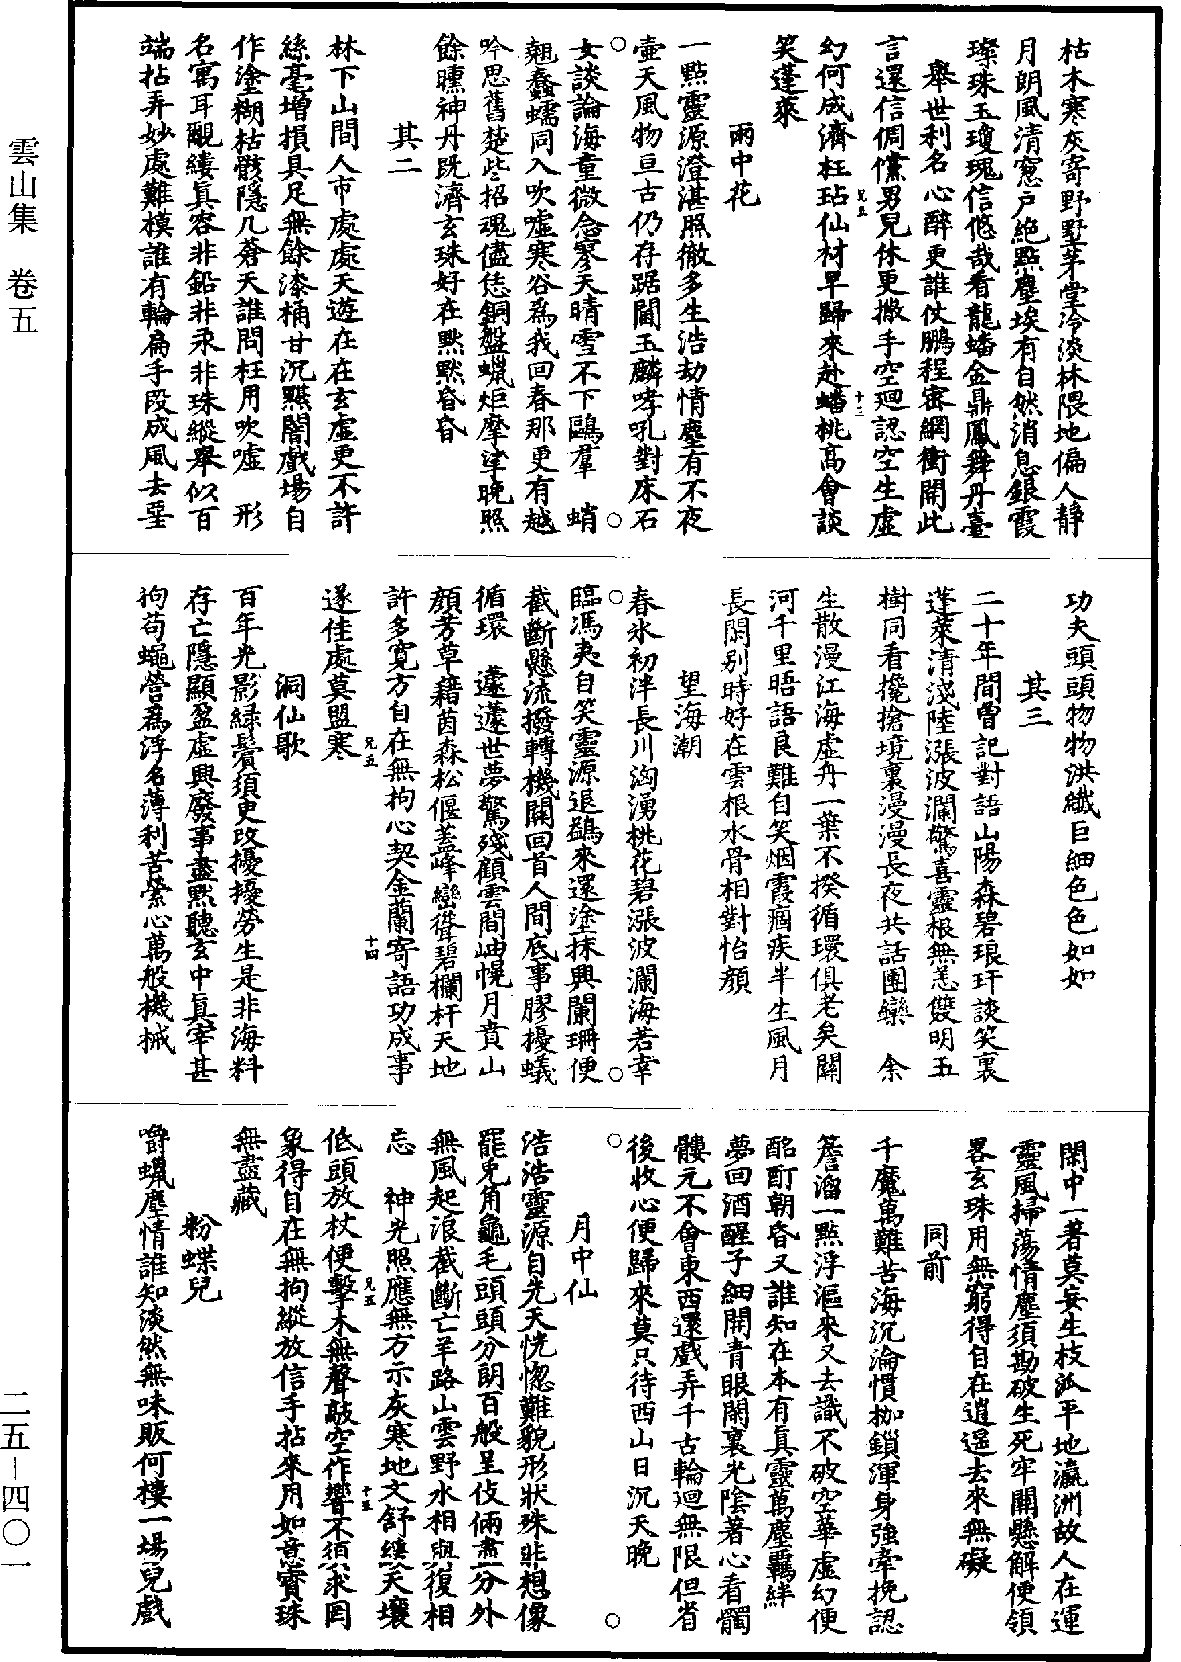 雲山集　卷五
枯木寒灰寄野墅茅堂冷淡林隈地偏人靜
月朗風清窻戶絶點塵埃有自然消息銀霞
璨珠玉瓊瑰信悠哉看龍蟠金鼎鳳舞丹臺
舉世利名心醉更誰仗鵬程密網衝開此
言還信倜儻男兒休更撒手空廻認空生虛
幻何成濟枉玷仙材早歸來赴蟠桃高會談
笑蓬萊
雨中花
一點靈源澄湛照徹多生浩劫情塵有不夜
壺天風物亘古仍存踞閬玉麟哮吼對床石
女談論海童微念寥天晴雪不下鷗羣　蛸
翹蠢蠕同入吹噓寒谷爲我回春那更有越
吟思舊楚些招魂儘恁銅盤蠟炬摩挲晚照
餘曛神丹既濟玄珠好在默默昏昏
其二
林下山間人市處處天遊在在玄虛更不許
絲毫增損具足無餘漆桶甘沉黶闇戲場自
作塗糊枯骸隱几蒼天誰問枉用吹噓　形
名寓耳覼縷眞容非鉛非汞非珠縱舉似百
端拈弄妙處難模誰有輪扁手段成風去堊
功夫頭頭物物洪纖巨細色色如如
其三
二十年間曾記對語山陽森碧琅玕談笑裏
蓬萊清淺陸漲波瀾驚喜靈根無恙雙明五
樹同看攙搶境裏漫漫長夜共話團欒　余
生散漫江海虛舟一葉不揆循環俱老矣關
河千里晤語良難自笑烟霞痼疾半生風月
長閑别時好在雲根水骨相對怡顔
望海潮
春氷初泮長川洶湧桃花碧漲波瀾海若幸
臨馮夷自笑靈源退鷁來還塗抹興闌珊便
截斷懸流撥轉機關回首人間底事膠擾蟻
循環　蘧蘧世夢驚殘顧雲間岫幌月賁山
顔芳草藉茵森松偃蓋峰巒聳碧欄杆天地
許多寬方自在無拘心契金蘭寄語功成事
遂佳處莫盟寒
洞仙歌
百年光影緑鬢須臾改擾擾勞生是非海料
存亡隱顯盈虛興廢事盡默聽玄中眞宰甚
拘苟蠅營爲浮名薄利苦縈心萬般機械
閑中一著莫妄生枝派平地瀛洲故人在運
靈風掃蕩情塵須勘破生死牢關懸解便領
畧玄珠用無窮得自在逍遥去來無礙
同前
千魔萬難苦海沉淪慣枷鎖渾身強牽挽認
簷溜一點浮漚來又去識不破空華虛幻便
酩酊朝昏又誰知在本有眞靈萬塵覊絆
夢回酒醒子細開青眼閑裏光陰著心看髑
髏元不會東西還戲弄千古輪迴無限但省
後收心便歸來莫只待西山日沉天晚
月中仙
浩浩靈源自先天恍惚難貌形狀殊非想像
罷兔角龜毛頭頭分朗百般呈伎倆盡一分外
無風起浪截斷亡羊路山雲野水相與復相
忘　神光照應無方示灰寒地文舒纏天壤
低頭放杖便擊木無聲敲空作響不須求罔
象得自在無拘縱放信手拈來用如意寶珠
無盡藏
粉蝶兒
嚼蠟塵情誰知淡然無味販何樓一場兒戲
兄五
十三
兄五
十四
兄五
十五
二五－四〇一